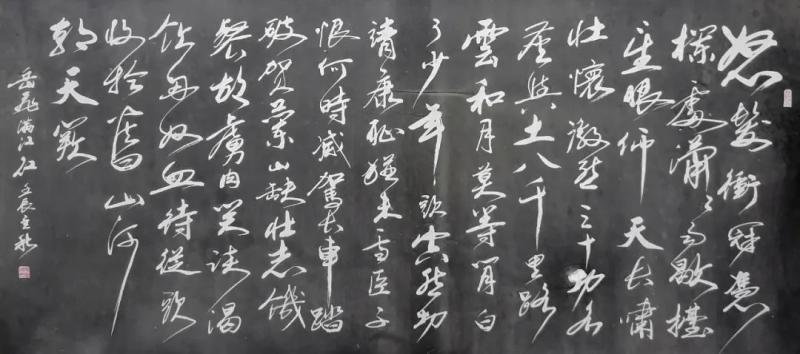 怒髮衝冠憑
欄處瀟瀟雨歇擡
望眼仰天長嘯
壯懷激烈三十功名
塵與土八千里路
雲和月莫等閒白
了少年頭空悲切
靖康恥猶未雪臣子
恨何時滅駕長車踏
破賀蘭山缺壯志饑
餐胡虜肉笑談渴
飲匈奴血待從頭
收拾舊山河
朝天闕
岳飛滿江紅 壬辰